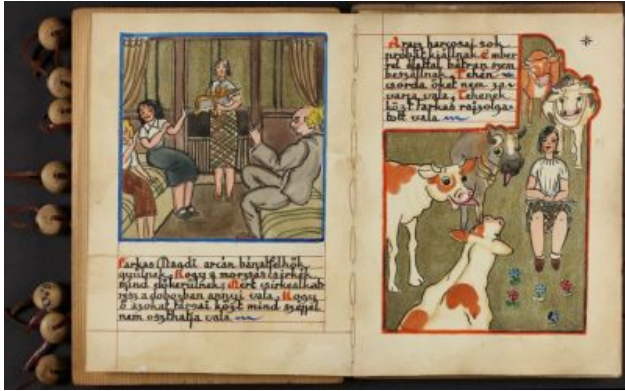 Farkas Magdi arcán bánatfelhők
gyülnek, Hogy a morzsás csirkék
mind előkerülnek; Mert csirkealkat
rész a dobozban annyi vala, Hogy
ő azokat társai közt mind széjjel
nem oszthatja vala
harcosai sok
próbát kiállnak Ember
rel állattal bátran szem
beszállnak, Tehén
csorda őket nem za
varja vala, Tehenek
közt Farkas rajzolga
tott vala